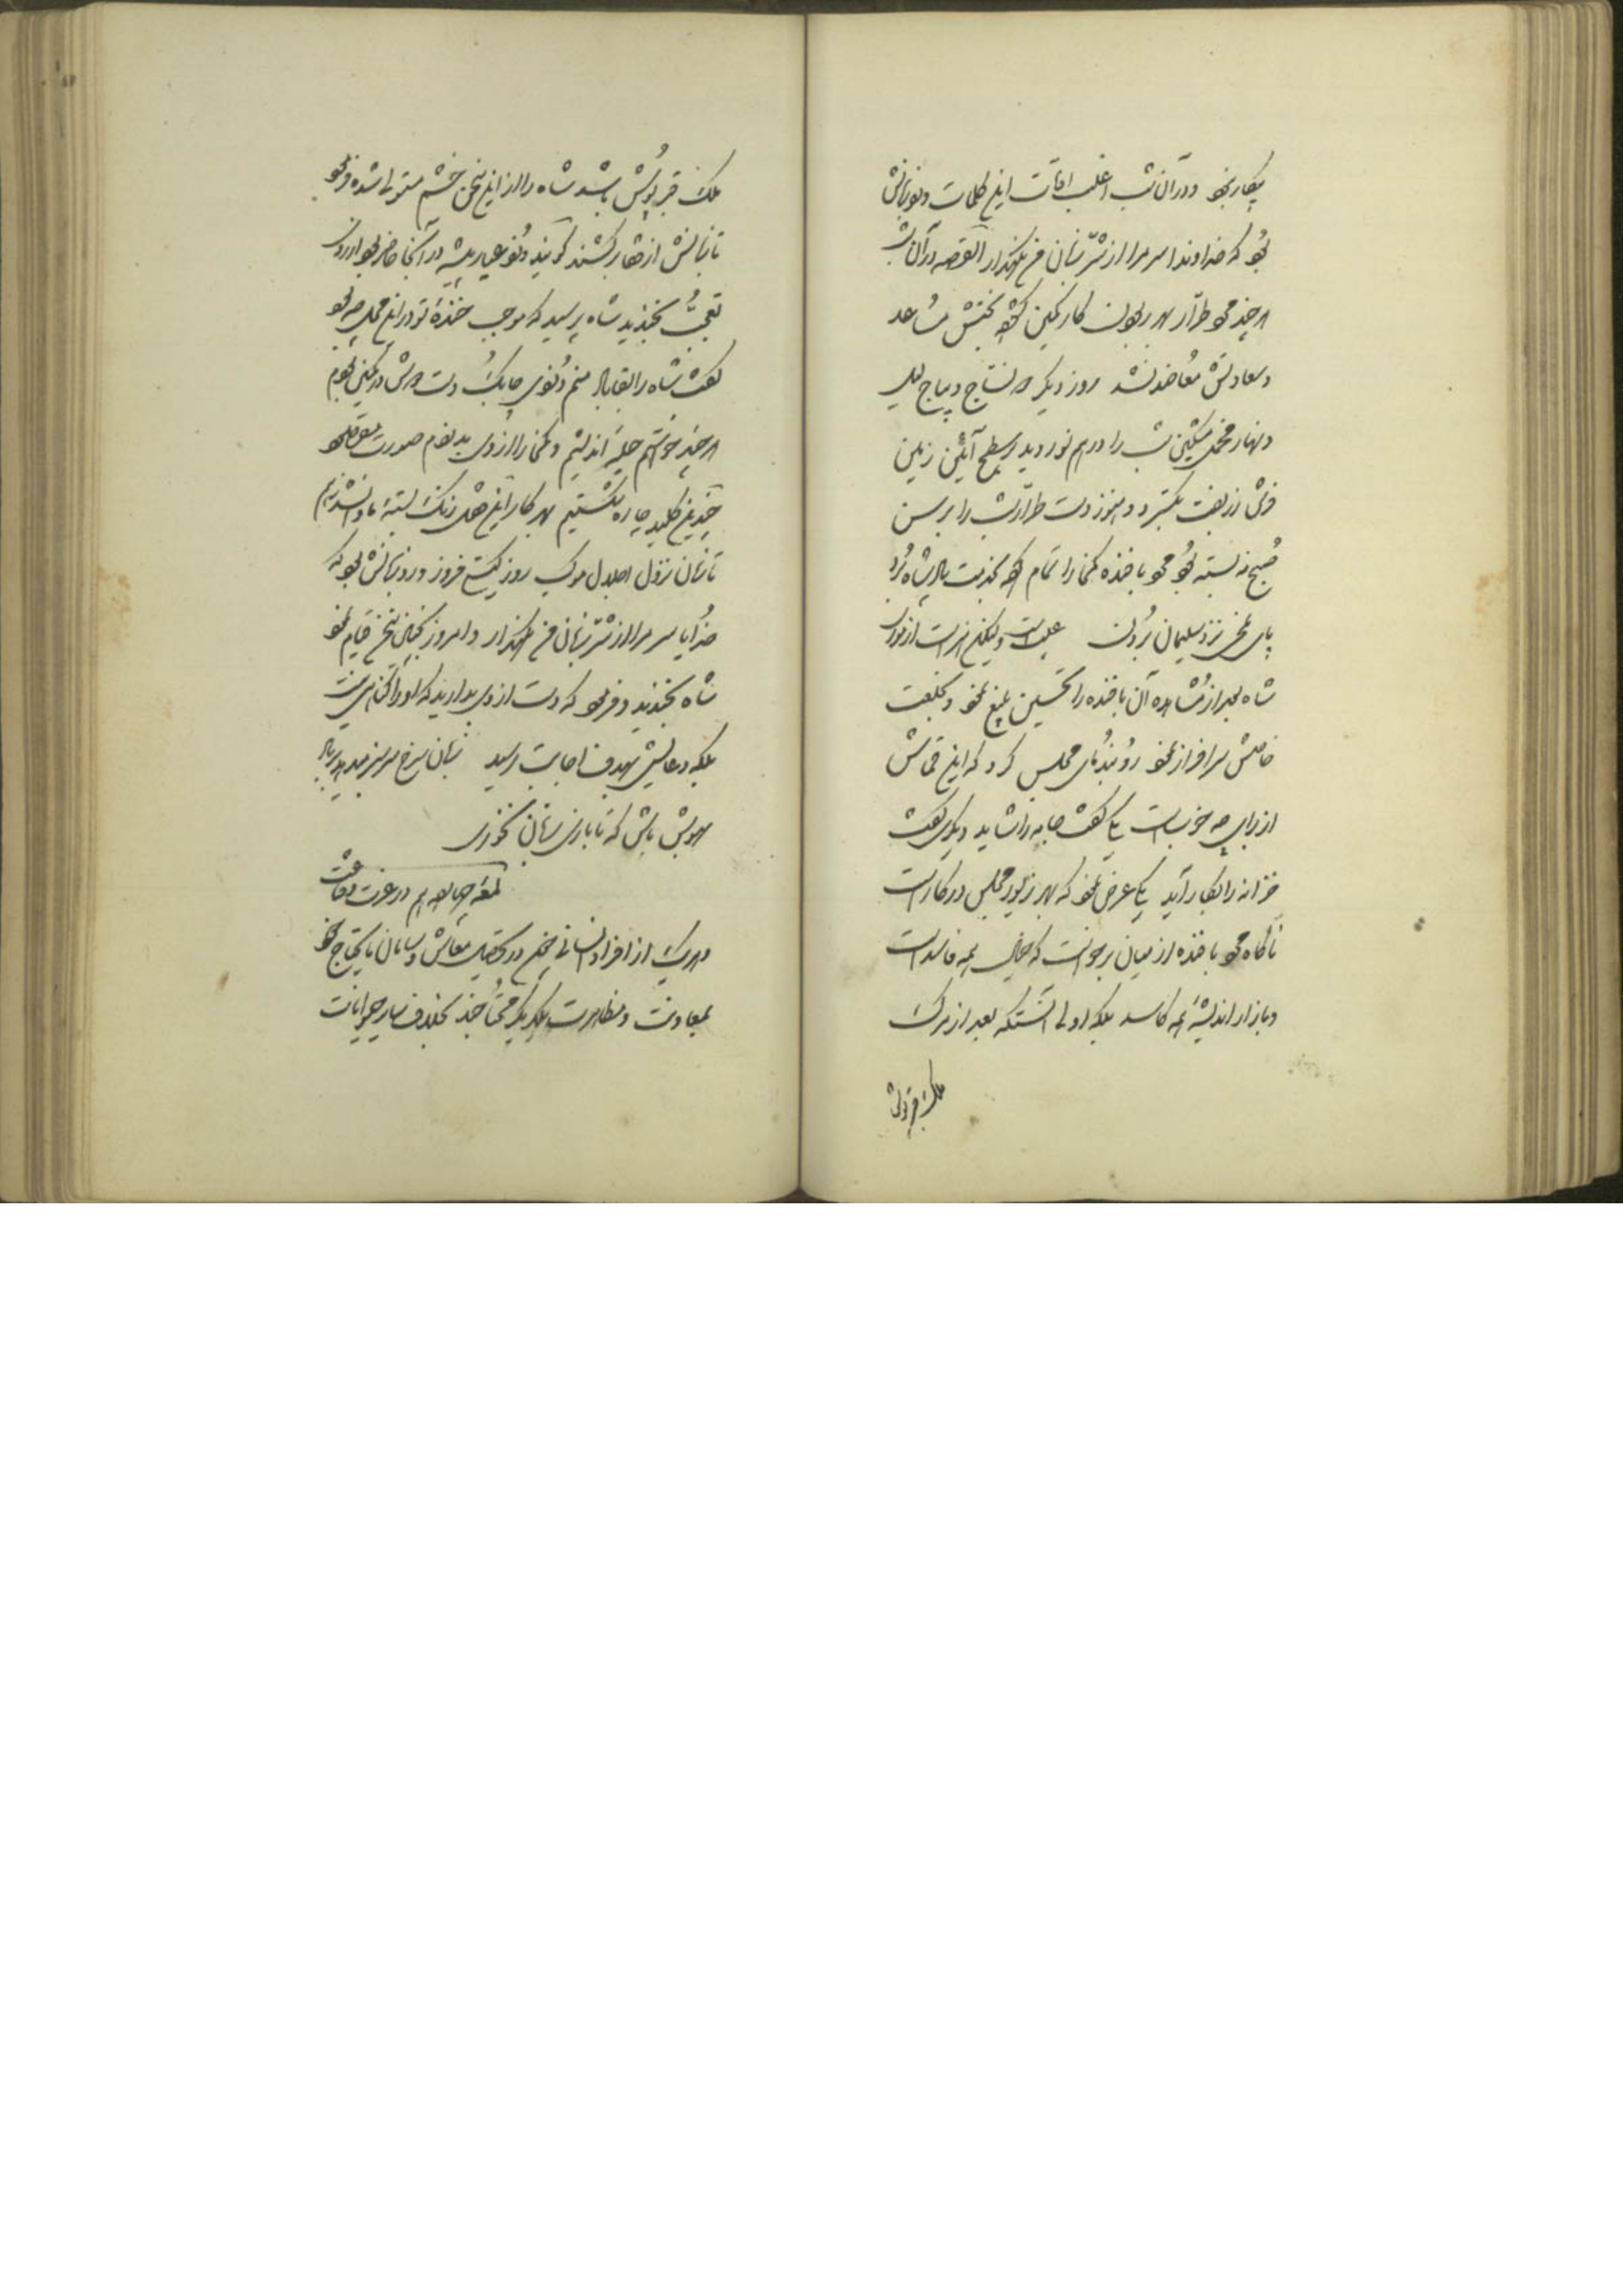 بیکار نبود و در آن شب اغلب اوقات این کلمات ورد زبانش
بود که خداوندا سر مرا از شر زبان من نگهدار القصه در آن شب
هر چند مرد طرار بهر ربودن کار کمین کرد بختش مساعد
و سعادتش معاضد نشد روز دیگر که نساج دیباج لیل
و نهار مخمل مشکین شب را در هم نوردید و بر سطح آبگین زمین
فرش زربفت بگسترد و هنوز دست طرار شب را بر رسن
صبح نه بسته بود مرد بافنده کمخا را تمام کرده بخدمت پادشاه برد
پای ملخی نزد سلیمان بردن عیب است ولیکن هنر است از موری
شاه بعد از مشاهده آن بافنده را تحسین بلیغ نمود و بخلعت
خاصش سرافراز نمود رو بندمای مجلس کرد که این قماش
از برای چه خوبست یکی گفت جامه را شاید دیگری گفت
خزانه را بکار آید یکی عرض نمود که بهر زیور مجلس در کار است
ناگاه مرد بافنده از میان برخواست که خیال همه فاسد است
و بازار اندیشه همه کاسد بلکه اولی آنستکه بعد از مرگ
ملک قبرپوش
ملک قبرپوش باشد شاه را از این سخن خشم مستولی شده فرمود
تا زبانش از قفا برکشند گویند دزد عیار پیشه در آنجا حاضر بود از روی
تعجب بخندید شاه پرسید که موجب خنده تو در این محل چه بود
گفت شاه را بقا باد منم دزدی چابک دست دوش در کمین بودم
هر چند خواستم حیله اندیشم و کمخا را از وی بدزدم صورت نبست
چندین کلید چاره شکستیم بهر کار این قفل زنگ بسته ما وا نشد
تا زمان نزول اجلال موکب روز گیتی فروز ورد زبانش بود که
خدایا سر مرا از شر زبان من نگهدار و امروز بچنان سخن قیام نمود
شاه بخندید و فرمود که دست از وی بدارید که او را گناهی نیست
بلکه دعایش بهدف اجابت رسید زبان سرخ سر سبز میدهد بر باد
بهوش باش که تا بازی زبان نخوری
لمعه چهارم در عزت و قناعت
و هر یک از افراد انسانی در تحصیل معاش و سامان مایحتاج خود
بمعاونت و مظاهرت یکدیگر محتاجند بخلاف سایر حیوانات